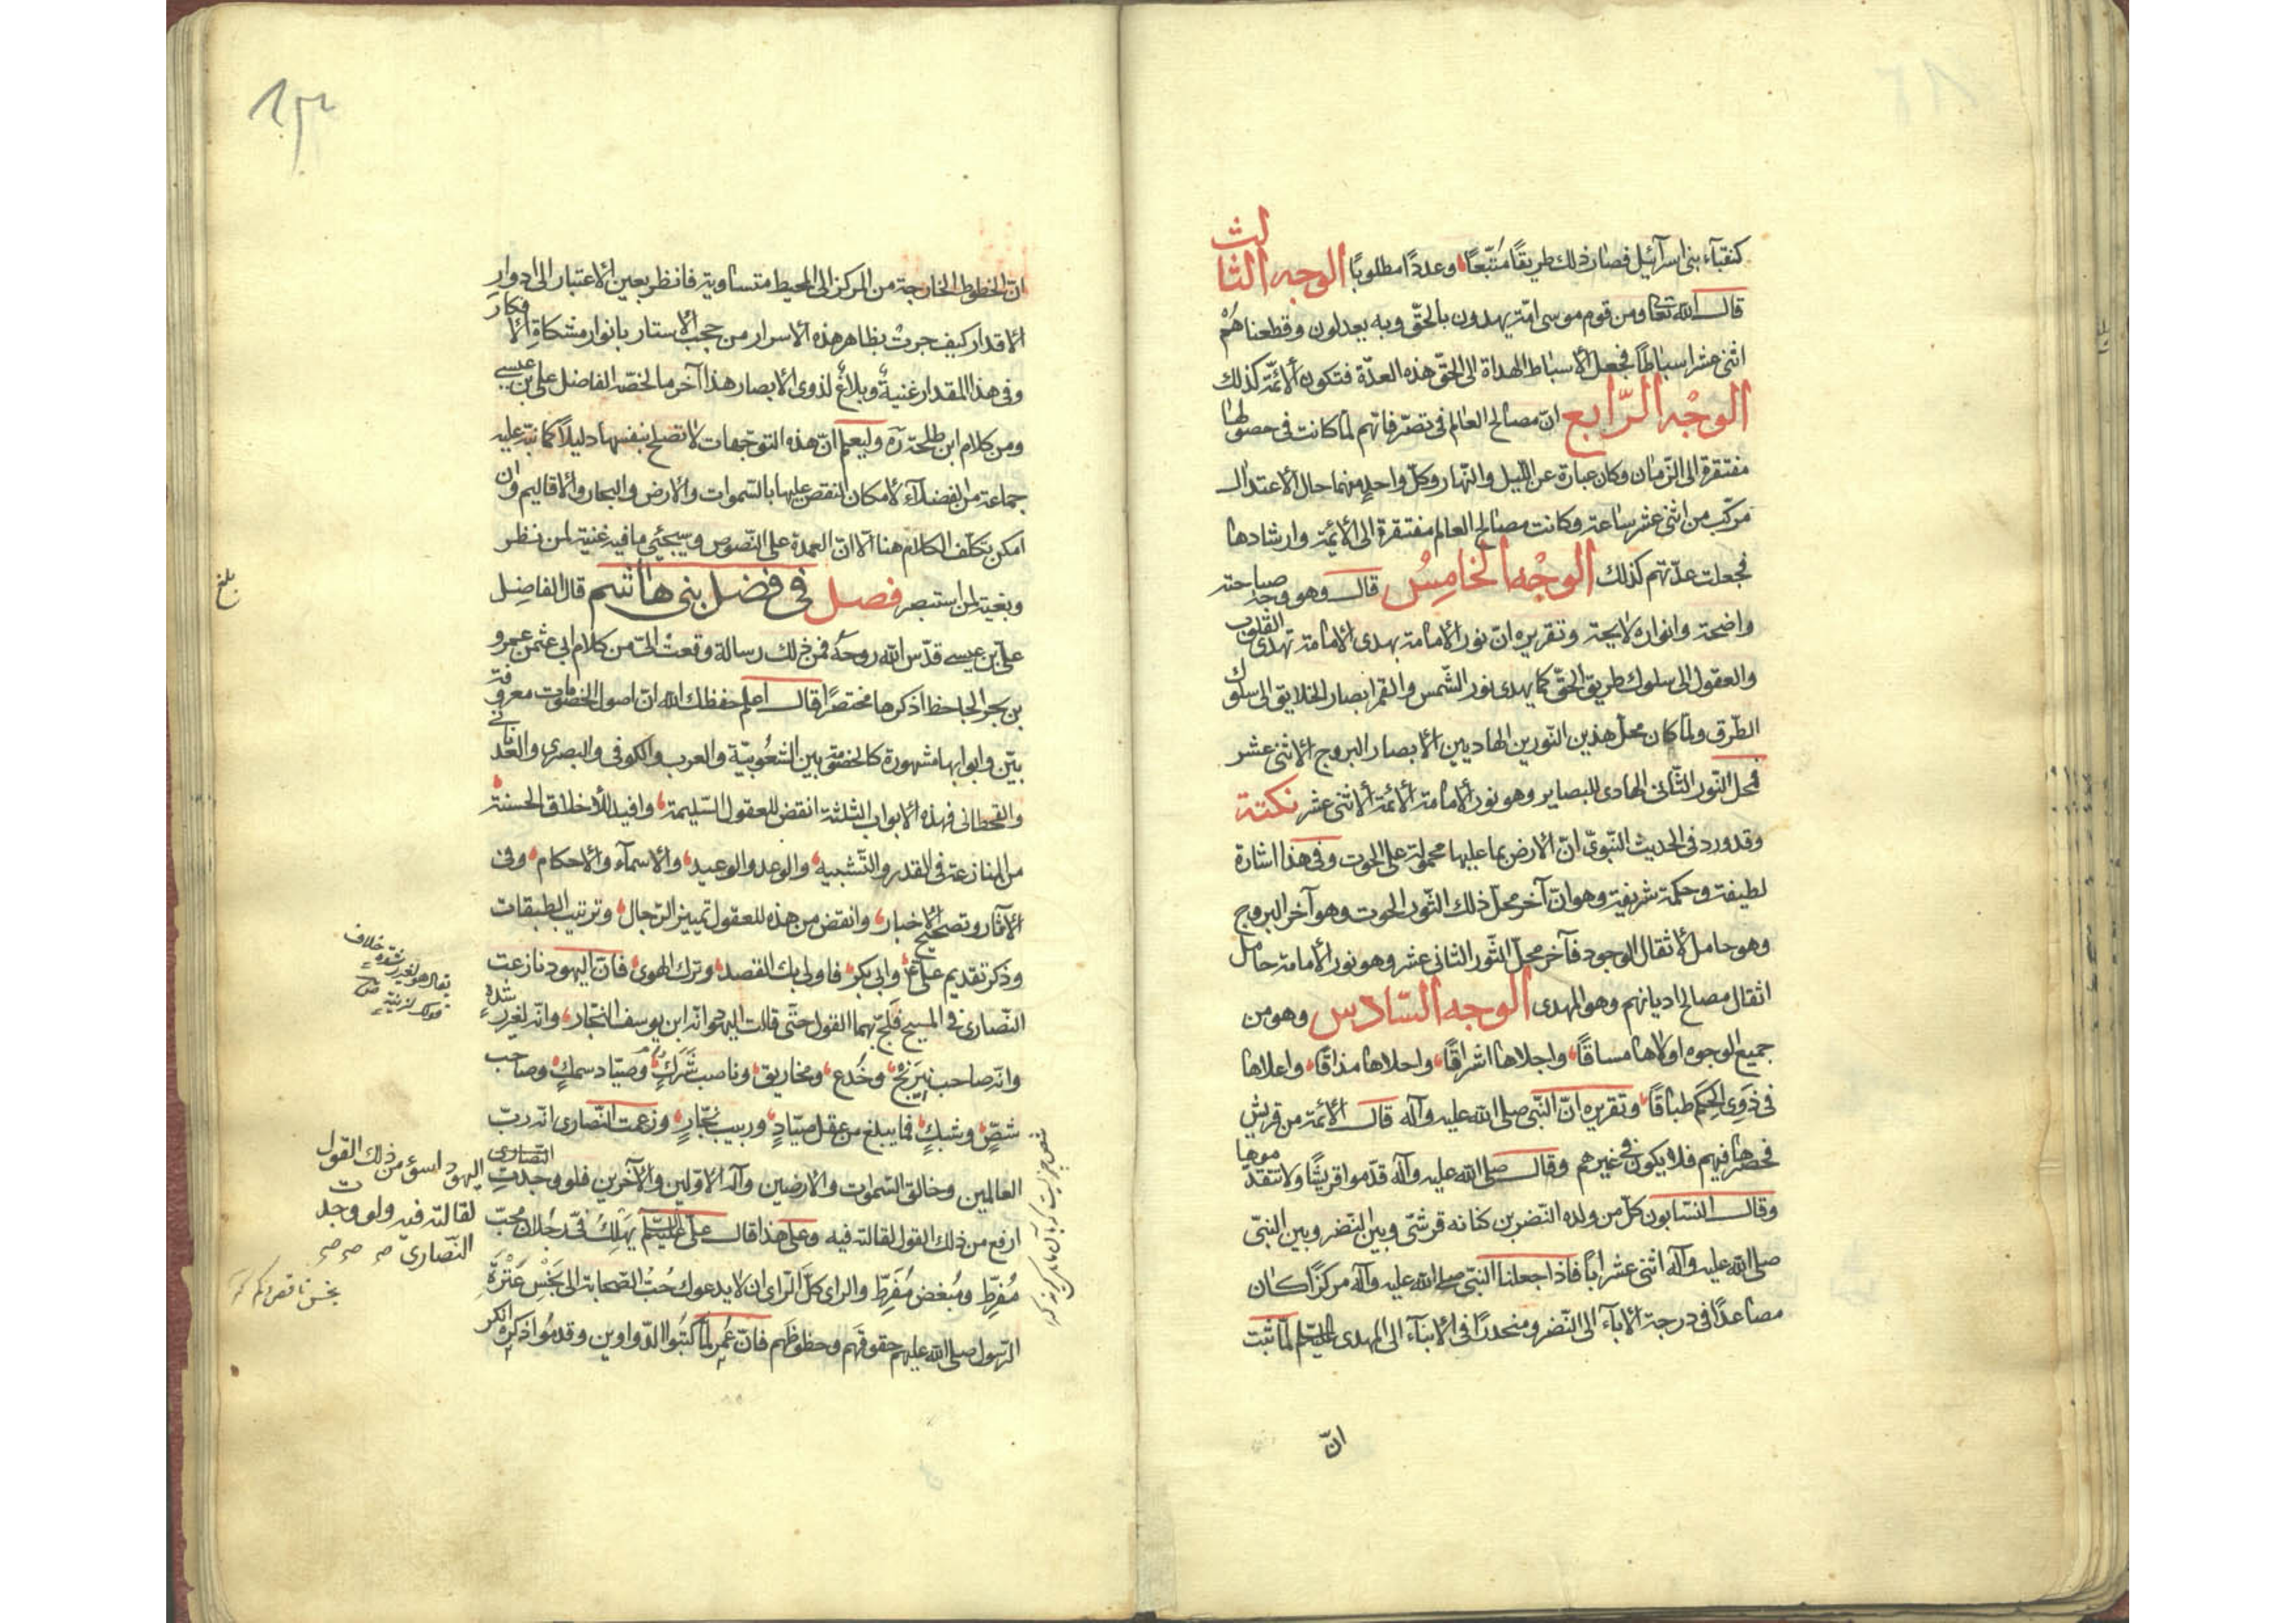 كنقبآء بنى اسرآئيل فصار ذلك طريقًا مُتّبعًا وعددًا مطلوبًا الوجه الثالث
قال الله تعا ومن قوم موسى امّة يهدون بالحقّ وبه يعدلون وقطعناهُمْ
اثنى عشر اسباطًا فجعل الأسباط الهداة الى الحقّ هذه العدّة فتكون الأئمّة كذلك
الوجْه الرّابع انّ مصالح العالم فى تصرّفاتهم لما كانت فى حصولها
مفتقرة الى الزّمان وكان عبارة عن اللّيل والنّهار وكلّ واحدٍ منهما حال الأعتدال
مركّب من اثنى عشر ساعة وكانت مصالح العالم مفتقرة الى الأئمّة وارشادها
فجعلت عدّتهم كذلك الوجْه الخامِسُ قال وهو وجه صباحته
واضحة وانواره لايحة وتقريره انّ نور الأمامة يهدى الامامة تهدى القلوب
والعقول الى سلوك طريق الحقّ كما يهدى نور الشّمس والقمر ابصار الخلايق الى سلوك
الطّرق ولمّا كان محلّ هذين النّورين الهاديين الأبصار البروج الاثنى عشر
فمحلّ النّور الثّانى الهادى للبصاير وهو نور الأمامة الأئمّة الاثنى عشر نكتة
وقد ورد فى الحديث النّبوىّ انّ الأرض بما عليها محمولة على الحوت وفى هذا اشارة
لطيفة وحكمة شريفة وهو انّ آخر محلّ ذلك النّور الحوت وهو آخر البروج
وهو حامل لاثقال الوجود فآخر محلّ النّور الثانى عشر وهو نور الأمامة حامل
اثقال مصالح اديانهم وهو المهدى الوجه السّادس وهو من
جميع الوجوه اولاها مساقًا واجلاها اشراقًا واحلاها مذاقًا واعلاها
فى ذوى الحِكَم طباقًا وتقريره انّ النّبى صلى الله عليه وآله قال الأئمّة من قريش
فحصرها فيهم فلا يكون فى غيرهم وقال صلى الله عليه وآله قدّموا قريشًا ولا تتقدموها
وقال النسّابون كلّ من ولده النّضر بن كنانه قرشىّ وبين النّضر وبين النبىّ
صلى الله عليه وآله اثنى عشر ابًا فاذا جعلنا النبّى صلى الله عليه وآله مركزًا كان
مصاعدًا فى درجة الآبآء الى النّضر ومنحدرًا فى الابنآء الى المهدى عليه السّلم لمّا ثبت
انّ
انّ الخطوط الخارجة من المركز الى المحيط متساوية فانظر بعين الاعتبار الى ادوار
الأقدار كيف جرت بظاهر هذه الأسرار من حجب الأستار بانوار مشكاة الأفكار
وفى هذا المقدار غنية وبلاغ لذوى الأبصار هذا آخر ما لخصّه الفاضل على بن عيسى
ومن كلام ابن طلحة ره وليعلم انّ هذه التوجّهات لا تصلح بنفسها دليلًا كما نبّه عليه
جماعة من الفضلآء لأمكان النقض عليها بالسّموات والارض والبحار والأقاليم وان
امكن بتكلّف الكلام هنا الّا انّ العمدة على النّصوص وسيجيئ ما فيه غنية لمن نظر
وبغية لمن استبصر فصل فى فضل بنى هاشم قال الفاضل
علىّ بن عيسى قدّس الله روحه فمن ذلك رسالة وقعت الىّ من كلام ابى عثمن عمرو
بن بحر الجاحظ اذكرها مختصرًا قال اعلم حفظك الله انّ اصول الخصومات معروفة
بيّن وابوابها مشهورة كالخصومة بين الشعُوبيّة والعرب والكوفى والبصرى والعدنانى
والقحطانى فهذه الابواب الثلثة انقض للعقول السّليمة وافيد للأخلاق الحسنة
من المنازعة فى القدر والتّشبيه والوعد والوعيد والاسمآء والأحكام وفى
الآثار وتصحيح الأخبار وانقض من هذه للعقول تمييز الرّجال وترتيب الطبقات
وذكر تقديم علىّ ع وابى بكر فاولى بك القصد وترك الهوى فانّ اليهود نازعت
النّصارى فى المسيح فلجّ بهما القول حتّى قالت اليهود انّه ابن يوسف النجّار وانّه لغير رشدة
وانّه صاحب نيرنج وخُدع ومخاريق وناصب شَرَكٍ وصيّاد سمكٍ وصاحب
شصّ وشبكٍ فما يبلغ من عقل صيّادٍ وربيب نجّارٍ وزعمت النّصارى انّه ربّ
العالمين وخالق السّموات والارضين وآله الاوّلين والآخرين فلو وجدت النصارى
ارفع من ذلك القول لقالته فيه وعلى هذا قال علىّ عليه السّلم يَهلِكُ فىّ رجُلان محبّ
مُفرِط ومُبغض مُفَرِّط والراى كلّ الرّاى ان لا يدعوك حُبّ الصّحابة الى بَخْسِ عَتْرَة
الرّسول صلى الله عليهم حقوقهم وحظوظهم فانّ عُمر لمّا كتبُوا الدّواوين وقدمُوا ذكره انكر
بلغ
يقال هو لغير رشدة خلاف
قولك لزنية ص
اليهود اسوء من ذلك القول
لقالته فيه ولو وجدت
النّصارى صح صح صح